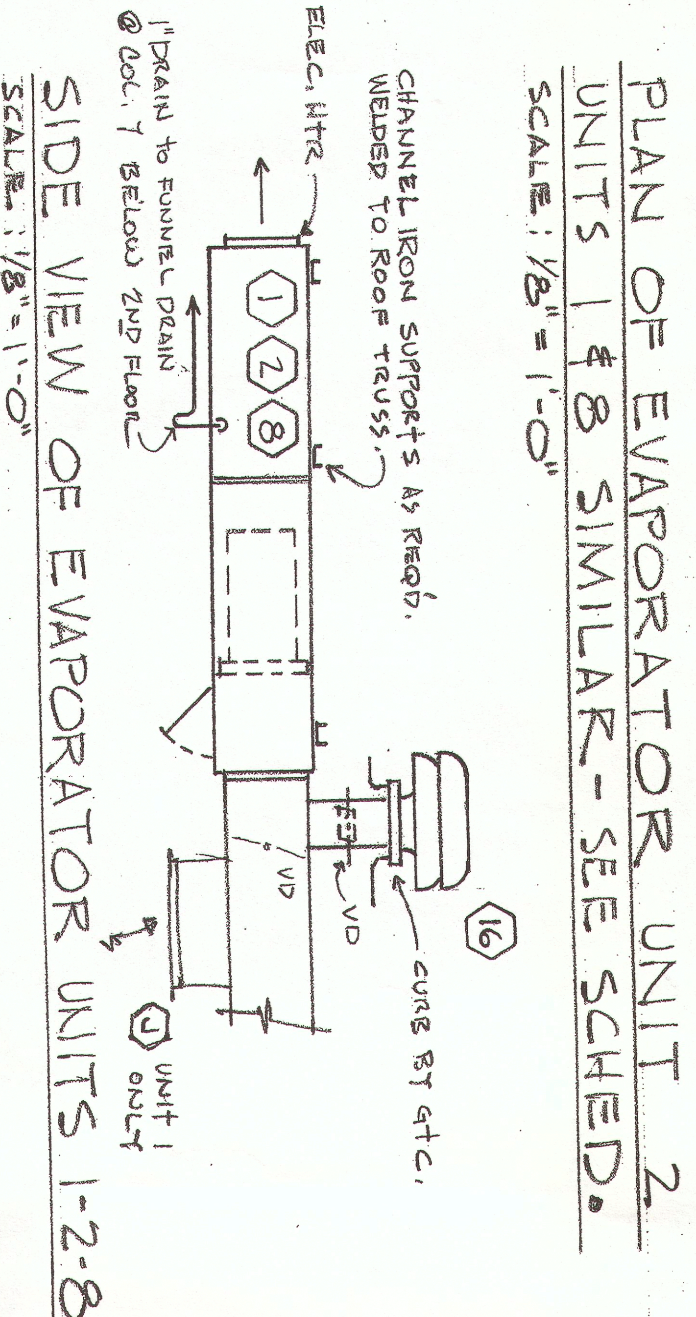 PLAN OF EVAPORATOR UNIT 2
UNITS 1 & 8 SIMILAR - SEE SCHED.
SCALE: 1/8" = 1'-0"
CHANNEL IRON SUPPORTS AS REQ'D.
WELDED TO ROOF TRUSS.
ELEC. HTR
16
CURB BY G+C.
VD
VD
1
2
8
1" DRAIN to FUNNEL DRAIN
@ COL. Y BELOW 2ND FLOOR
J
UNIT 1
ONLY
SIDE VIEW OF EVAPORATOR UNITS 1-2-8
SCALE: 1/8" = 1'-0"